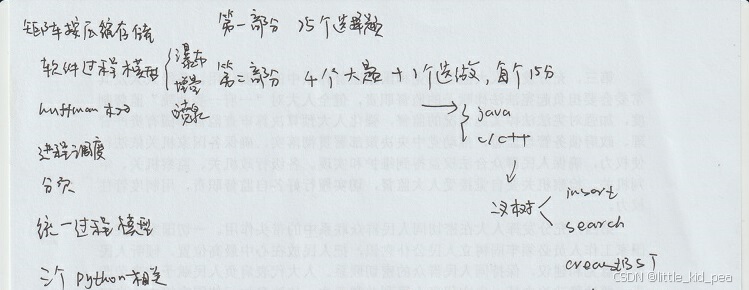 矩阵按压缩存储
第一部分 25个选择题
软件过程模型 { 瀑布 增量 喷泉
第二部分 4个大题 + 1个选做，每个15分
huffman 树
{ java
c/c++
进程调度
分页
二叉树 < insert
search
creat BST
统一过程模型
三个 python 相关
CSDN @little_kid_pea